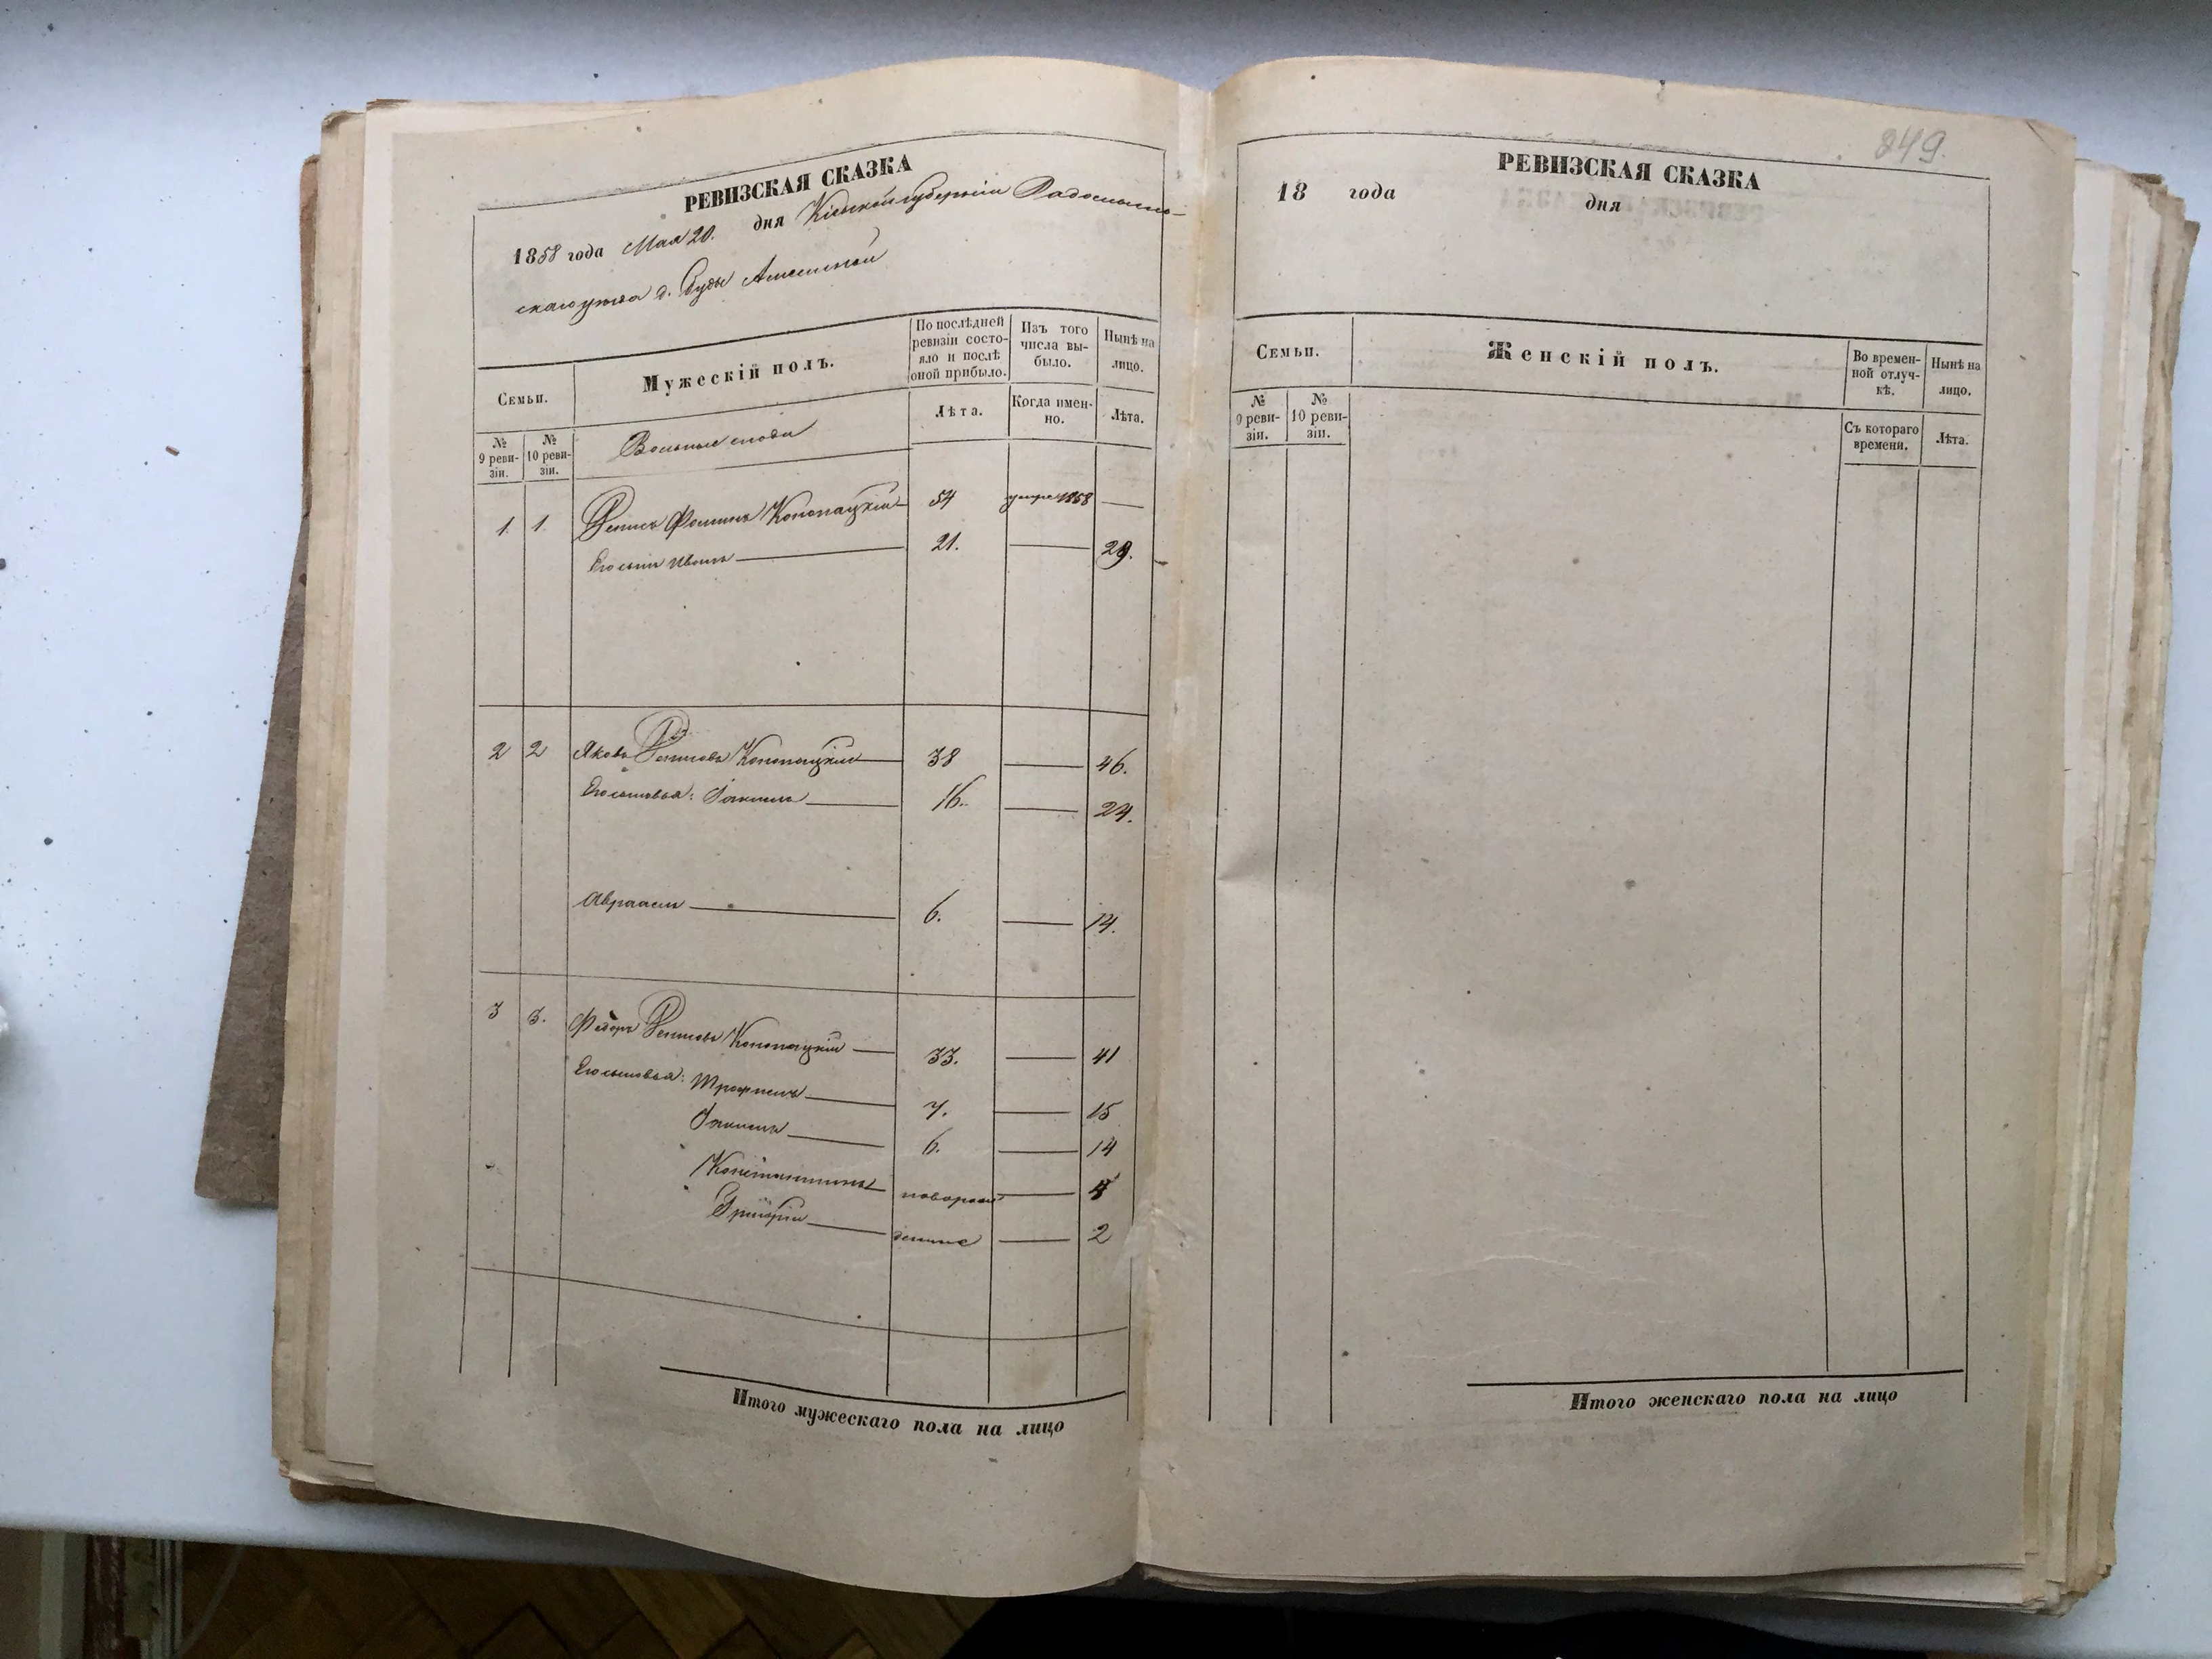 РЕВИЗСКАЯ СКАЗКА
1858 года Мая 20. дня Кіевской губерніи Радомысль-
скаго уезда д. Буды
Семьи.
Мужескій полъ.
По послѣдней ревизіи состо-
яло и послѣ
оной прибыло.
Изъ того
числа вы-
было.
Нынѣ на
лицо.
№
9 реви-
зіи.
№
10 реви-
зіи.
Вольные люди
Лѣта.
Когда имен-
но.
Лѣта.
1. 1. Денисъ Фоминъ Конопацкій 54 умре 1858 —
Его сынъ Иванъ — 21. — 29.
2 2 Яковъ Денисовъ Конопацкій — 38 — 46.
Его сыновья: Іоакимъ — 16. — 24.
Авраамъ — 6. — 14.
3 3. Федоръ Денисовъ Конопацкій — 33. — 41
Его сыновья: Трофимъ — 7. — 15
Іоакимъ — 6. — 14
Константинъ — новорож — 4
Григорій — денные — 2
Итого мужескаго пола на лицо
249.
РЕВИЗСКАЯ СКАЗКА
18 года дня
Семьи.
Женскій полъ.
Во времен-
ной отлуч-
кѣ.
Нынѣ на
лицо.
№
9 реви-
зіи.
№
10 реви-
зіи.
Съ котораго
времени.
Лѣта.
Итого женскаго пола на лицо